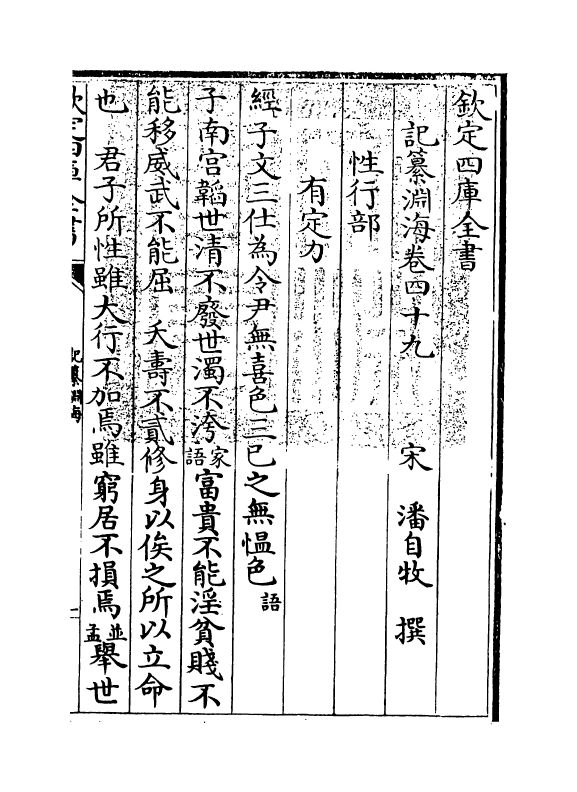 欽定四庫全書
記纂淵海卷四十九 宋 潘自牧 撰
性行部
有定力
經 子文三仕為令尹無喜色三已之無愠色語
子南宫韜世清不廢世濁不洿家語富貴不能淫貧賤不
能移威武不能屈 夭壽不貳修身以俟之所以立命
也 君子所性雖大行不加焉雖窮居不損焉並孟舉世
欽定四庫全書
記纂淵海
一